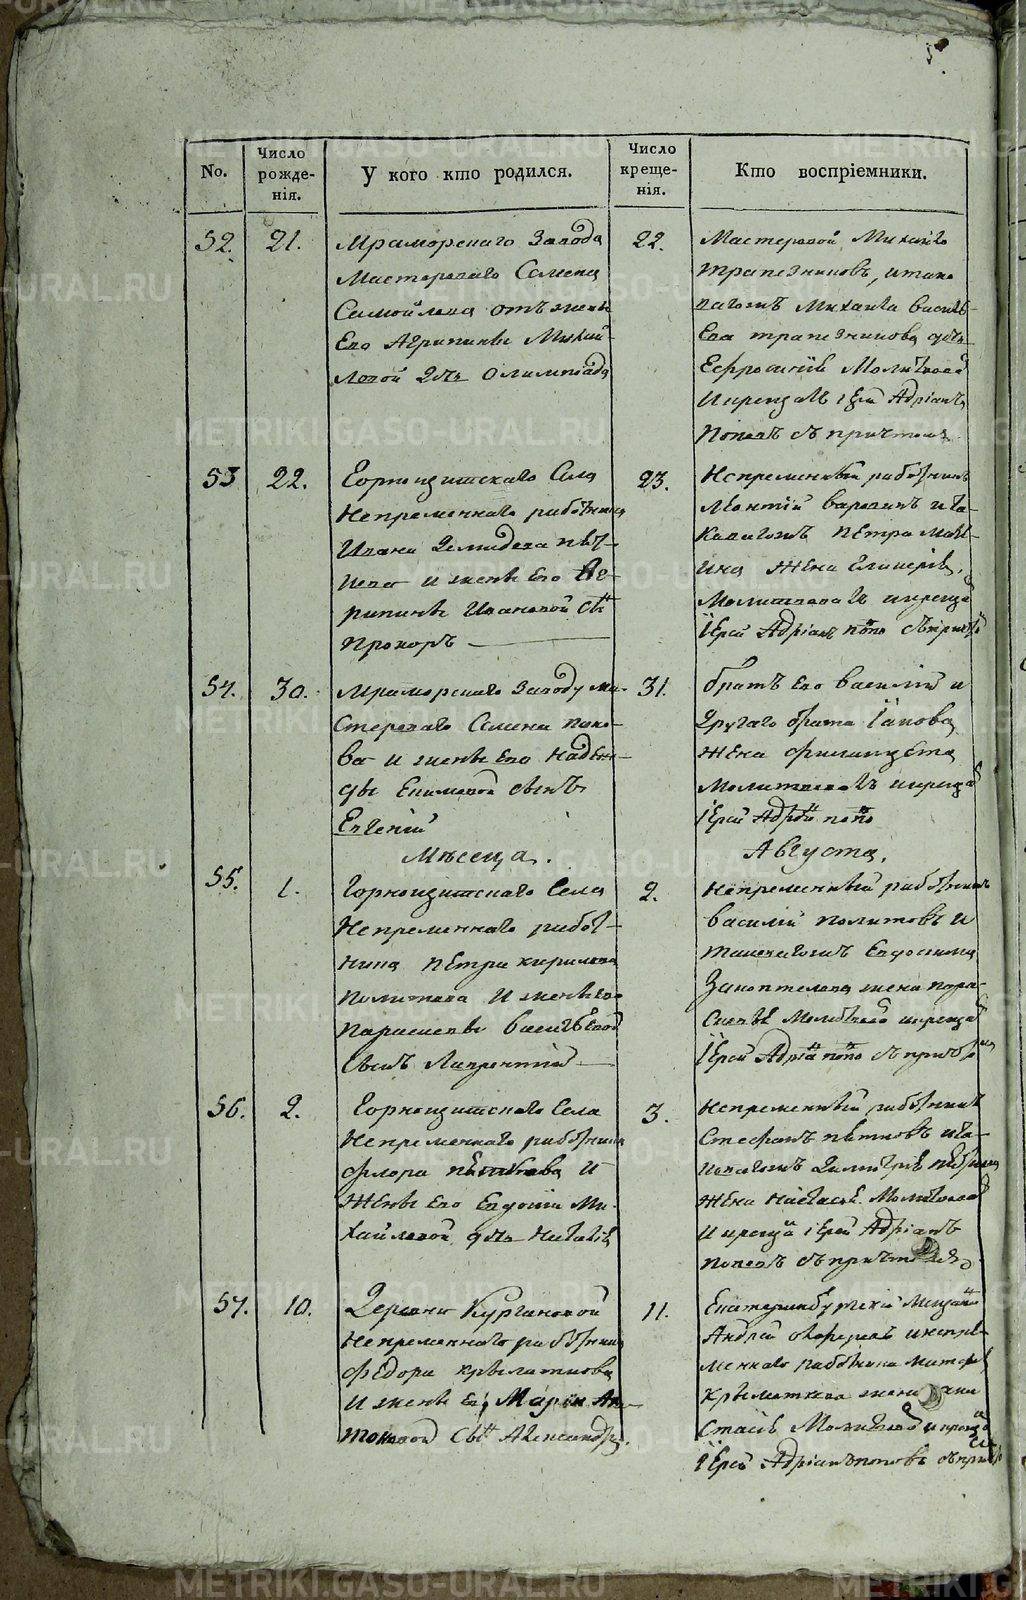 5.
No.
Число рожде-нія.
У кого кто родился.
Число креще-нія.
Кто воспріемники.
52. 21.
Мраморскаго Завода
Мастероваго Семена
Самойлова отъ жены
Его Агрипины Михай-
ловой дчь Олимпіада
22.
Мастеровой Михайло
Трапезниковъ, и тако
вагожъ Михаила Василь-
Ева трапезникова дчь
Ефросинія Молитвовал
И крещалъ іерей Адріанъ
Поповъ съ причтомъ
53 22.
Горнощитскаго Села
Непременнаго работника
Ивана Демидова
и жены Его Аг-
рипины Ивановой сынъ
Прохоръ
23.
Непременный работникъ
Леонтій и та-
ковагожъ Петра
ина Жена Гликерія,
Молитвовалъ и крещал
Іерей Адріанъ попо съ причто
54. 30.
Мраморскаго Заводу ма-
стероваго Семена попо-
ва и жены Его Надеж-
ды Екимовой сынъ
Евгеній
31.
братъ Его Василій и
Другаго брата Іакова
Жена
Молитвовалъ и крещал
Іерей Адріан попо
Месеца.
Августа.
55. 1.
Горнощитскаго Села
Непременнаго работ-
ника Петра кирилова
Политова И жены Его
Парасковьи Васильевой
Сынъ Лаврентій
2.
Непременный работникъ
Василій политовъ И
таковагожъ Евдокима
жена пора-
сковья Молитвовал и крещал
Іерей Адріа попо съ причто
56. 2.
Горнощитскаго Села
Непременнаго работника
флора пьткова И
Жены Его Евдокіи Ми-
хайловой дчь Наталія
3.
Непременный работникъ
Стефанъ пьтковъ и та-
ковагожъ Димитрія
Жена Настасья. Молитвовал
И крещал іерей Адріанъ
поповъ съ причтомъ
57. 10.
Деревни Кургановой
Непременнаго работника
федора крылаткова
И жены Ег, Маріи Ан-
тоновой сынъ Александръ.
11.
Екатеринбургскій Мещанин
Андрей и непре-
меннаго работника
Крылаткова жена Ана
стасія Молитвовал и крещал
Іерей Адріанъ поповъ съ прич
METRIKI.GASO-URAL.RU